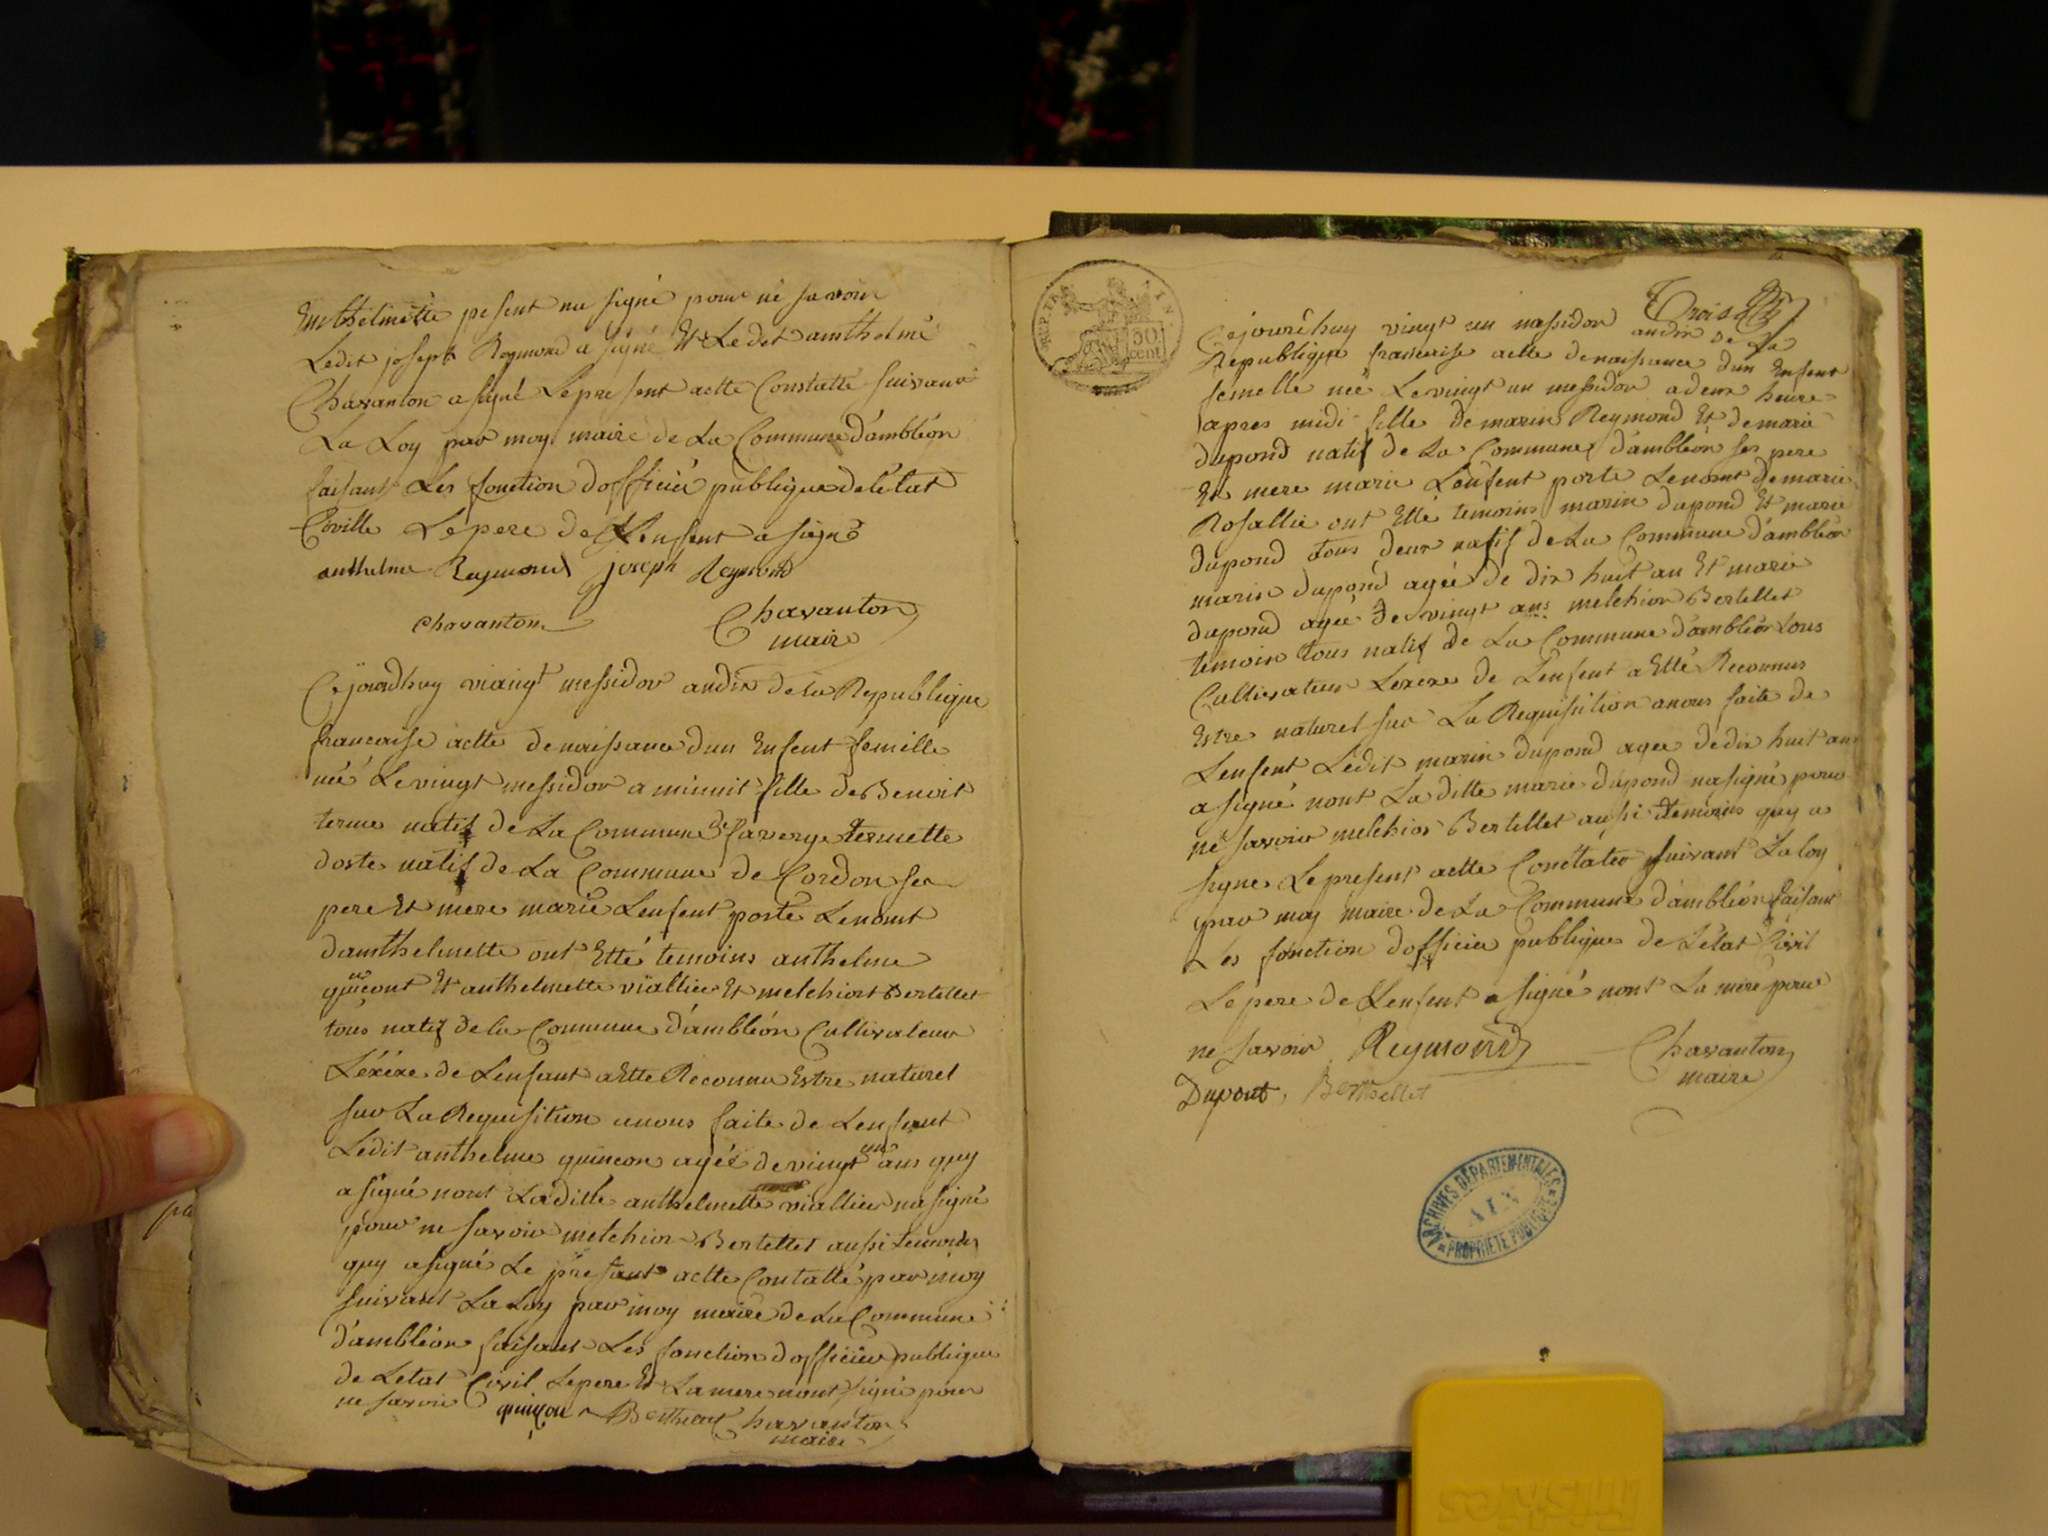 Emthelmette pesent na signé pour né savoir
Ledit joseph Reymond a signé Et Ledet amthelme
Chavanton a signé Lepresent actte Constatté suivant
La Loy par moy maire de La Commune d'ambléon
faisant Les fonction dofficié publique deLétat
Coville Lepere de Lenfent a signé
anthelme Raymond joseph Reymond
chavanton Chavanton
maire
Cejourdhuy viangt messidor andix de la Republique
francaise actte denaissance dun Enfent femille
néé Levingt messidor a minuit fille de Benoit
terme natif de La Commune de faverge termette
doste natif de La Commune de Cordon ses
pere Et mere marié Lenfent porte Lenomt
damthelmette ont Etté temoins anthelme
quincont Et anthelmette viallier Et melchiort Bertellet
tous natif de la Commune d'ambléon Cultivateur
Léxéxe de Lenfant a Ette Reconnu Estre naturel
sur La Requisition anous faite de Lenfant
Ledit anthelme quincon agéé devingt un ans quy
a signé nont Laditte anthelmette viallier na signé
pour ne savoir melchior Bertellet aussi temoins
quy a signé Le présant actte Contatté par moy
suivant La Loy par moy maire de La Commune
d'ambléon faisant Les fonction dofficiée publique
de Letat Civil Lepere Et La mere nont signé pour
ne savoir quinçon Berthelet Chavanton
maire
Trois
Cejourdhuy vingt un massidor andix de La
Republique francaise actte denaissance dun Enfent
femelle néé Levingt un messidor a deux heure
apres midi fille de marin Reymond Et de marie
dupond natif de La Commune d'ambléon ses pere
Et mere marié Lenfent porte Lenomt demarie
Rosallie ont Etté temoins marin dupond Et marie
dupond tous deux natif de La Commune d'ambléon
marin dupond agéé de dix huit an Et marie
dupond agéé de vingt ans melchior Bertellet
temoin tous natif de La Commune d'ambléon tous
Cultivateur Lexexe de Lenfent a Etté Reconnus
Estre naturel sur La Requisition anous faite de
Lenfent Ledit marin dupond agee dedix huit ans
a signé nont La ditte marie dupond na signé pour
né savoir melchior Bertellet aussi temoins quy a
signe Lepresent actte Constatéo suivant La loy
par moy maire de La Commune d'ambléon faisant
Les fonction dofficiée publique de Létat Civil
Lepere de Lenfent a signé nont La mere pour
ne savoir Reymond Chavanton
maire
Dupont, Berthellet
50
cent
ARCHIVES DÉPARTEMENTALES
AIN
PROPRIÉTÉ PUBLIQUE